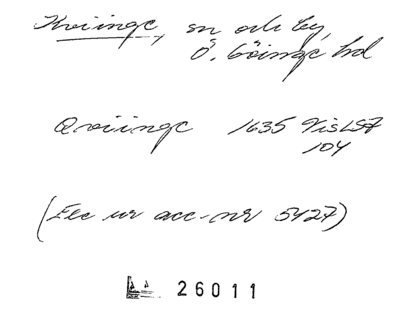 Kviinge, sn och by,
Ö. Göinge hd
Qviinge 1635 VisLSF
104
(Exc ur acc.-nr 5427)
26011